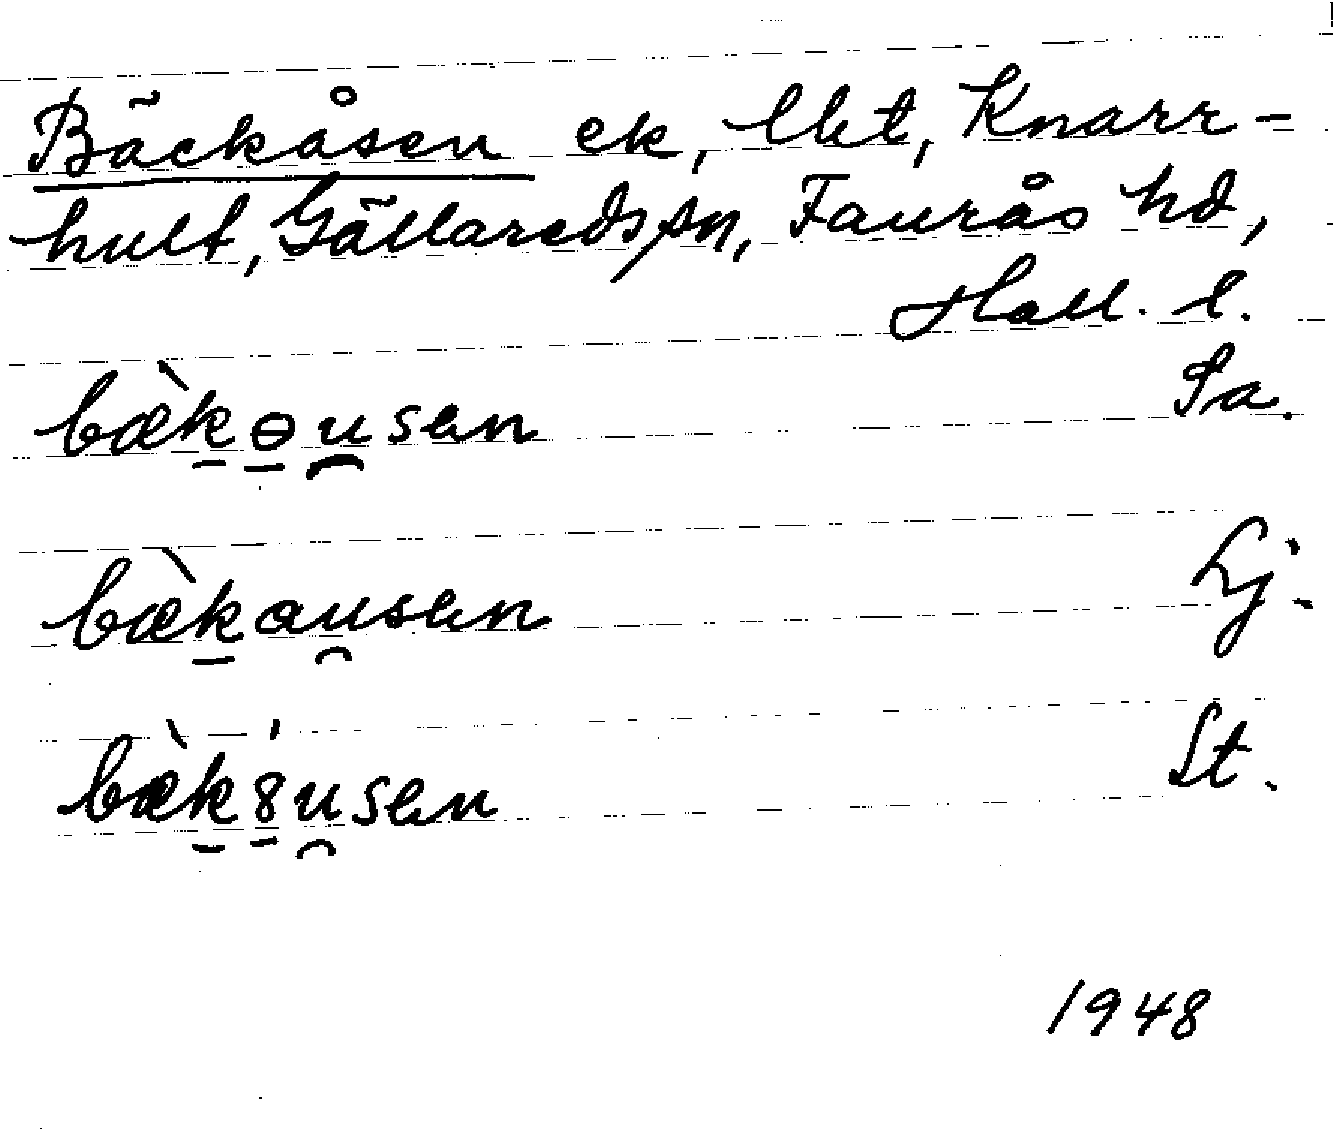 Bäckåsen ek, lht, Knarr-
hult, Gällareds sn, Faurås hd,
Hall. l.
bæ̀k̠ɵ̠u̯sen Sa.
bæ̀k̠au̯sen Lj:
bæ̀k̠8̠́u̯sen St.
1948